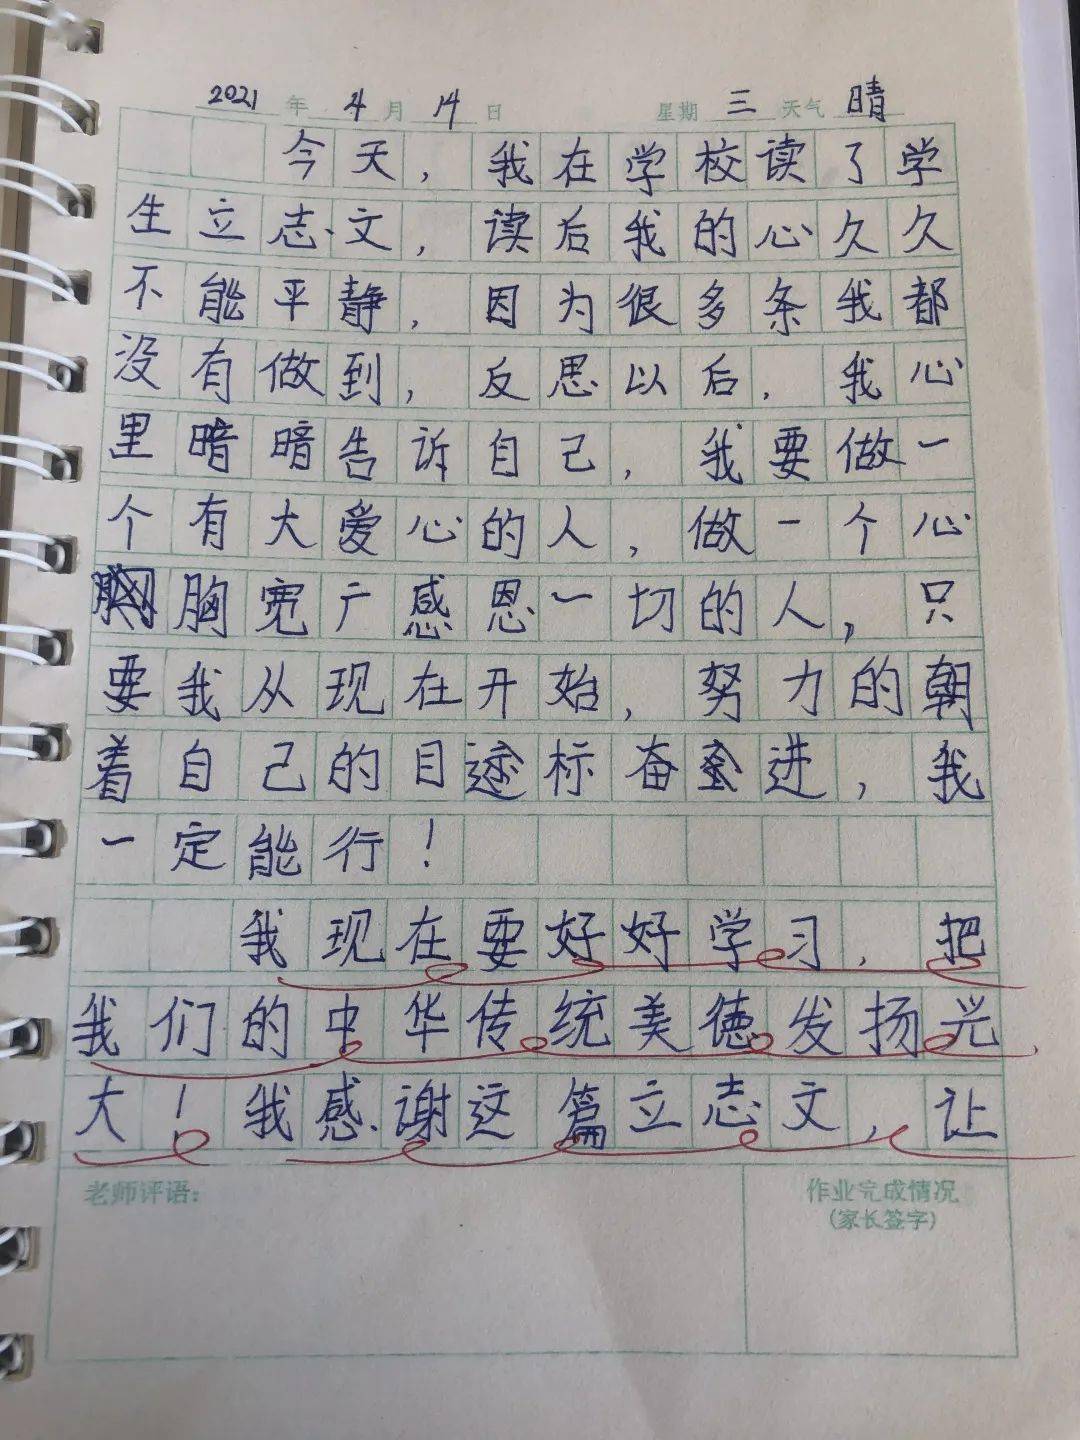 2021年4月14日 星期三 天气晴
今天，我在学校读了学
生立志文，读后我的心久久
不能平静，因为很多条我都
没有做到，反思以后，我心
里暗暗告诉自己，我要做一
个有大爱心的人，做一个心
胸宽广感恩一切的人，只
要我从现在开始，努力的朝
着自己的目标奋进，我
一定能行！
我现在要好好学习，把
我们的中华传统美德发扬光
大！我感谢这篇立志文，让
老师评语：
作业完成情况
(家长签字)